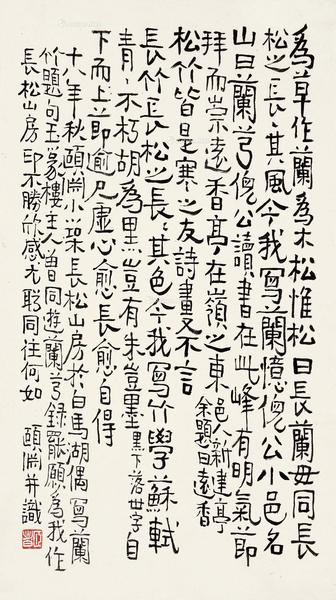 為草作蘭為木松惟松曰長蘭毋同長
松之長長其風今我寫蘭憶傯公小邑名
山曰蘭芎傯公讀書在此峰有明氣節
拜而崇遠香亭在嶺之東邑人新建亭余題曰遠香
松竹皆是寒之友詩畫又不言
長竹長松之長長其色今我寫竹學蘇軾
青青不朽胡為黑豈有朱豈墨黑下落世字自
下而上節逾尺虛心愈長愈自得
十八年秋頤淵小築長松山房於白馬湖偶寫蘭
竹題句王篆樓主人曽同遊蘭芎錄罷願為我作
長松山房印不勝欣感尤盼同往何如 頤淵并識